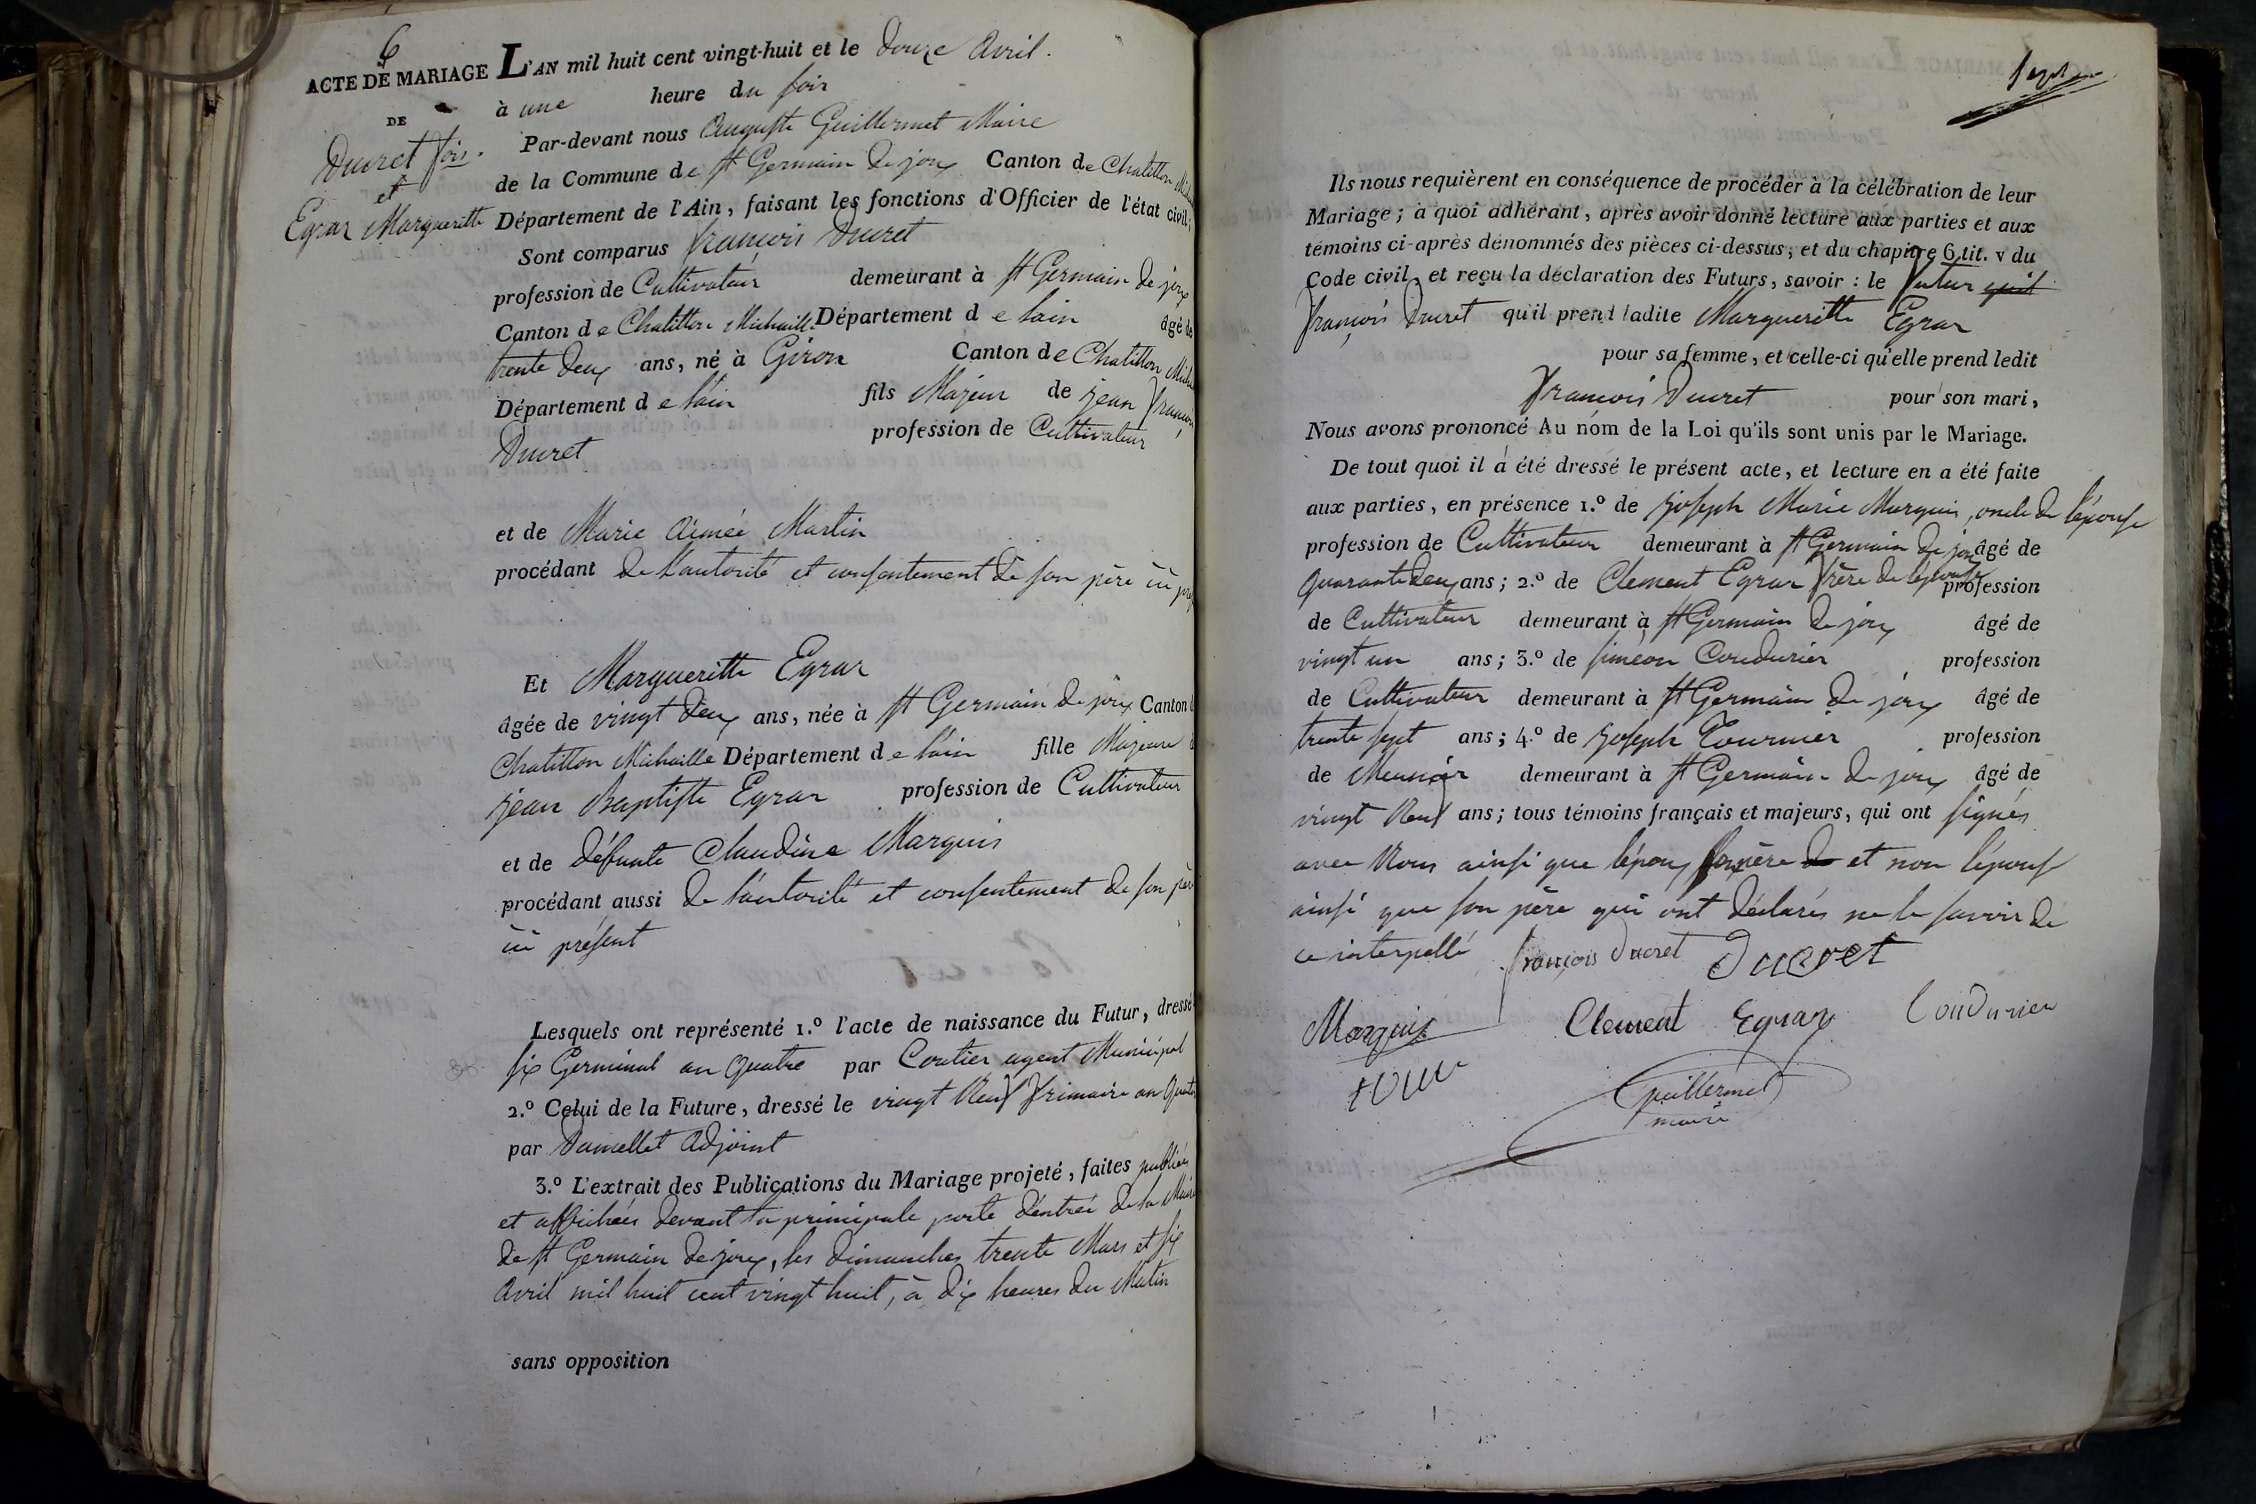 6
ACTE DE MARIAGE
DE
Ducret fois.
et
Egraz Margueritte
L'AN mil huit cent vingt-huit et le douze Avril.
à une heure du soir
Par-devant nous Auguste Guillermet Maire
de la Commune de st Germain de joux Canton de Chatillon
Département de l'Ain, faisant les fonctions d'Officier de l'état civil;
Sont comparus françois Ducret
profession de Cultivateur demeurant à st Germain de joux
Canton de Chatillon Michaille Département de lain âgé de
trente deux ans, né à Giron Canton de Chatillon
Département de lain fils Majeur de jean françois
Ducret profession de Cultivateur
et de Marie Aimée Martin
procédant de l'autorité et consentement de son père ici
Et Margueritte Egraz
âgée de vingt deux ans, née à st Germain de joux Canton
Chatillon Michaille Département de lain fille Majeure
jean Baptiste Egraz profession de Cultivateur
et de défunte Claudine Marquis
procédant aussi de l'autorité et consentement de son père
ici présent
Lesquels ont représenté 1.º l'acte de naissance du Futur, dressé
six Germinal an quatre par Coutier agent Municipal
2.º Celui de la Future, dressé le vingt Neuf frimaire an
par Ducellet Adjoint
3.º L'extrait des Publications du Mariage projeté, faites publiées
et affichées devant la principale porte d'entrée de la
de st Germain de joux, les dimanches trente Mars et six
Avril mil huit cent vingt huit, à dix heures du Matin
sans opposition
sept
Ils nous requièrent en conséquence de procéder à la célébration de leur
Mariage; à quoi adhérant, après avoir donné lecture aux parties et aux
témoins ci-après dénommés des pièces ci-dessus, et du chapitre 6 tit. v du
Code civil, et reçu la déclaration des Futurs, savoir : le futur quil
françois Ducret qu'il prend ladite Margueritte Egraz
pour sa femme, et celle-ci qu'elle prend ledit
françois Ducret pour son mari,
Nous avons prononcé Au nom de la Loi qu'ils sont unis par le Mariage.
De tout quoi il a été dressé le présent acte, et lecture en a été faite
aux parties, en présence 1.º de joseph Marie Marquis, oncle de l'épouse
profession de Cultivateur demeurant à st Germain de joux âgé de
quarante deux ans; 2.º de Clement Egraz frère de l'épouse profession
de Cultivateur demeurant à st Germain de joux âgé de
vingt un ans; 3.º de siméon Coudurier profession
de Cultivateur demeurant à st Germain de joux âgé de
trente sept ans; 4.º de joseph Tournier profession
de Meunier demeurant à st Germain de joux âgé de
vingt Neuf ans; tous témoins français et majeurs, qui ont signés
avec Nous ainsi que l'époux son père et non l'épouse
ainsi que son père qui ont déclarés ne le savoir de
ce interpellé
françois Ducret Ducret
Marquis Clement Egraz Coudurier
Guillermet
maire